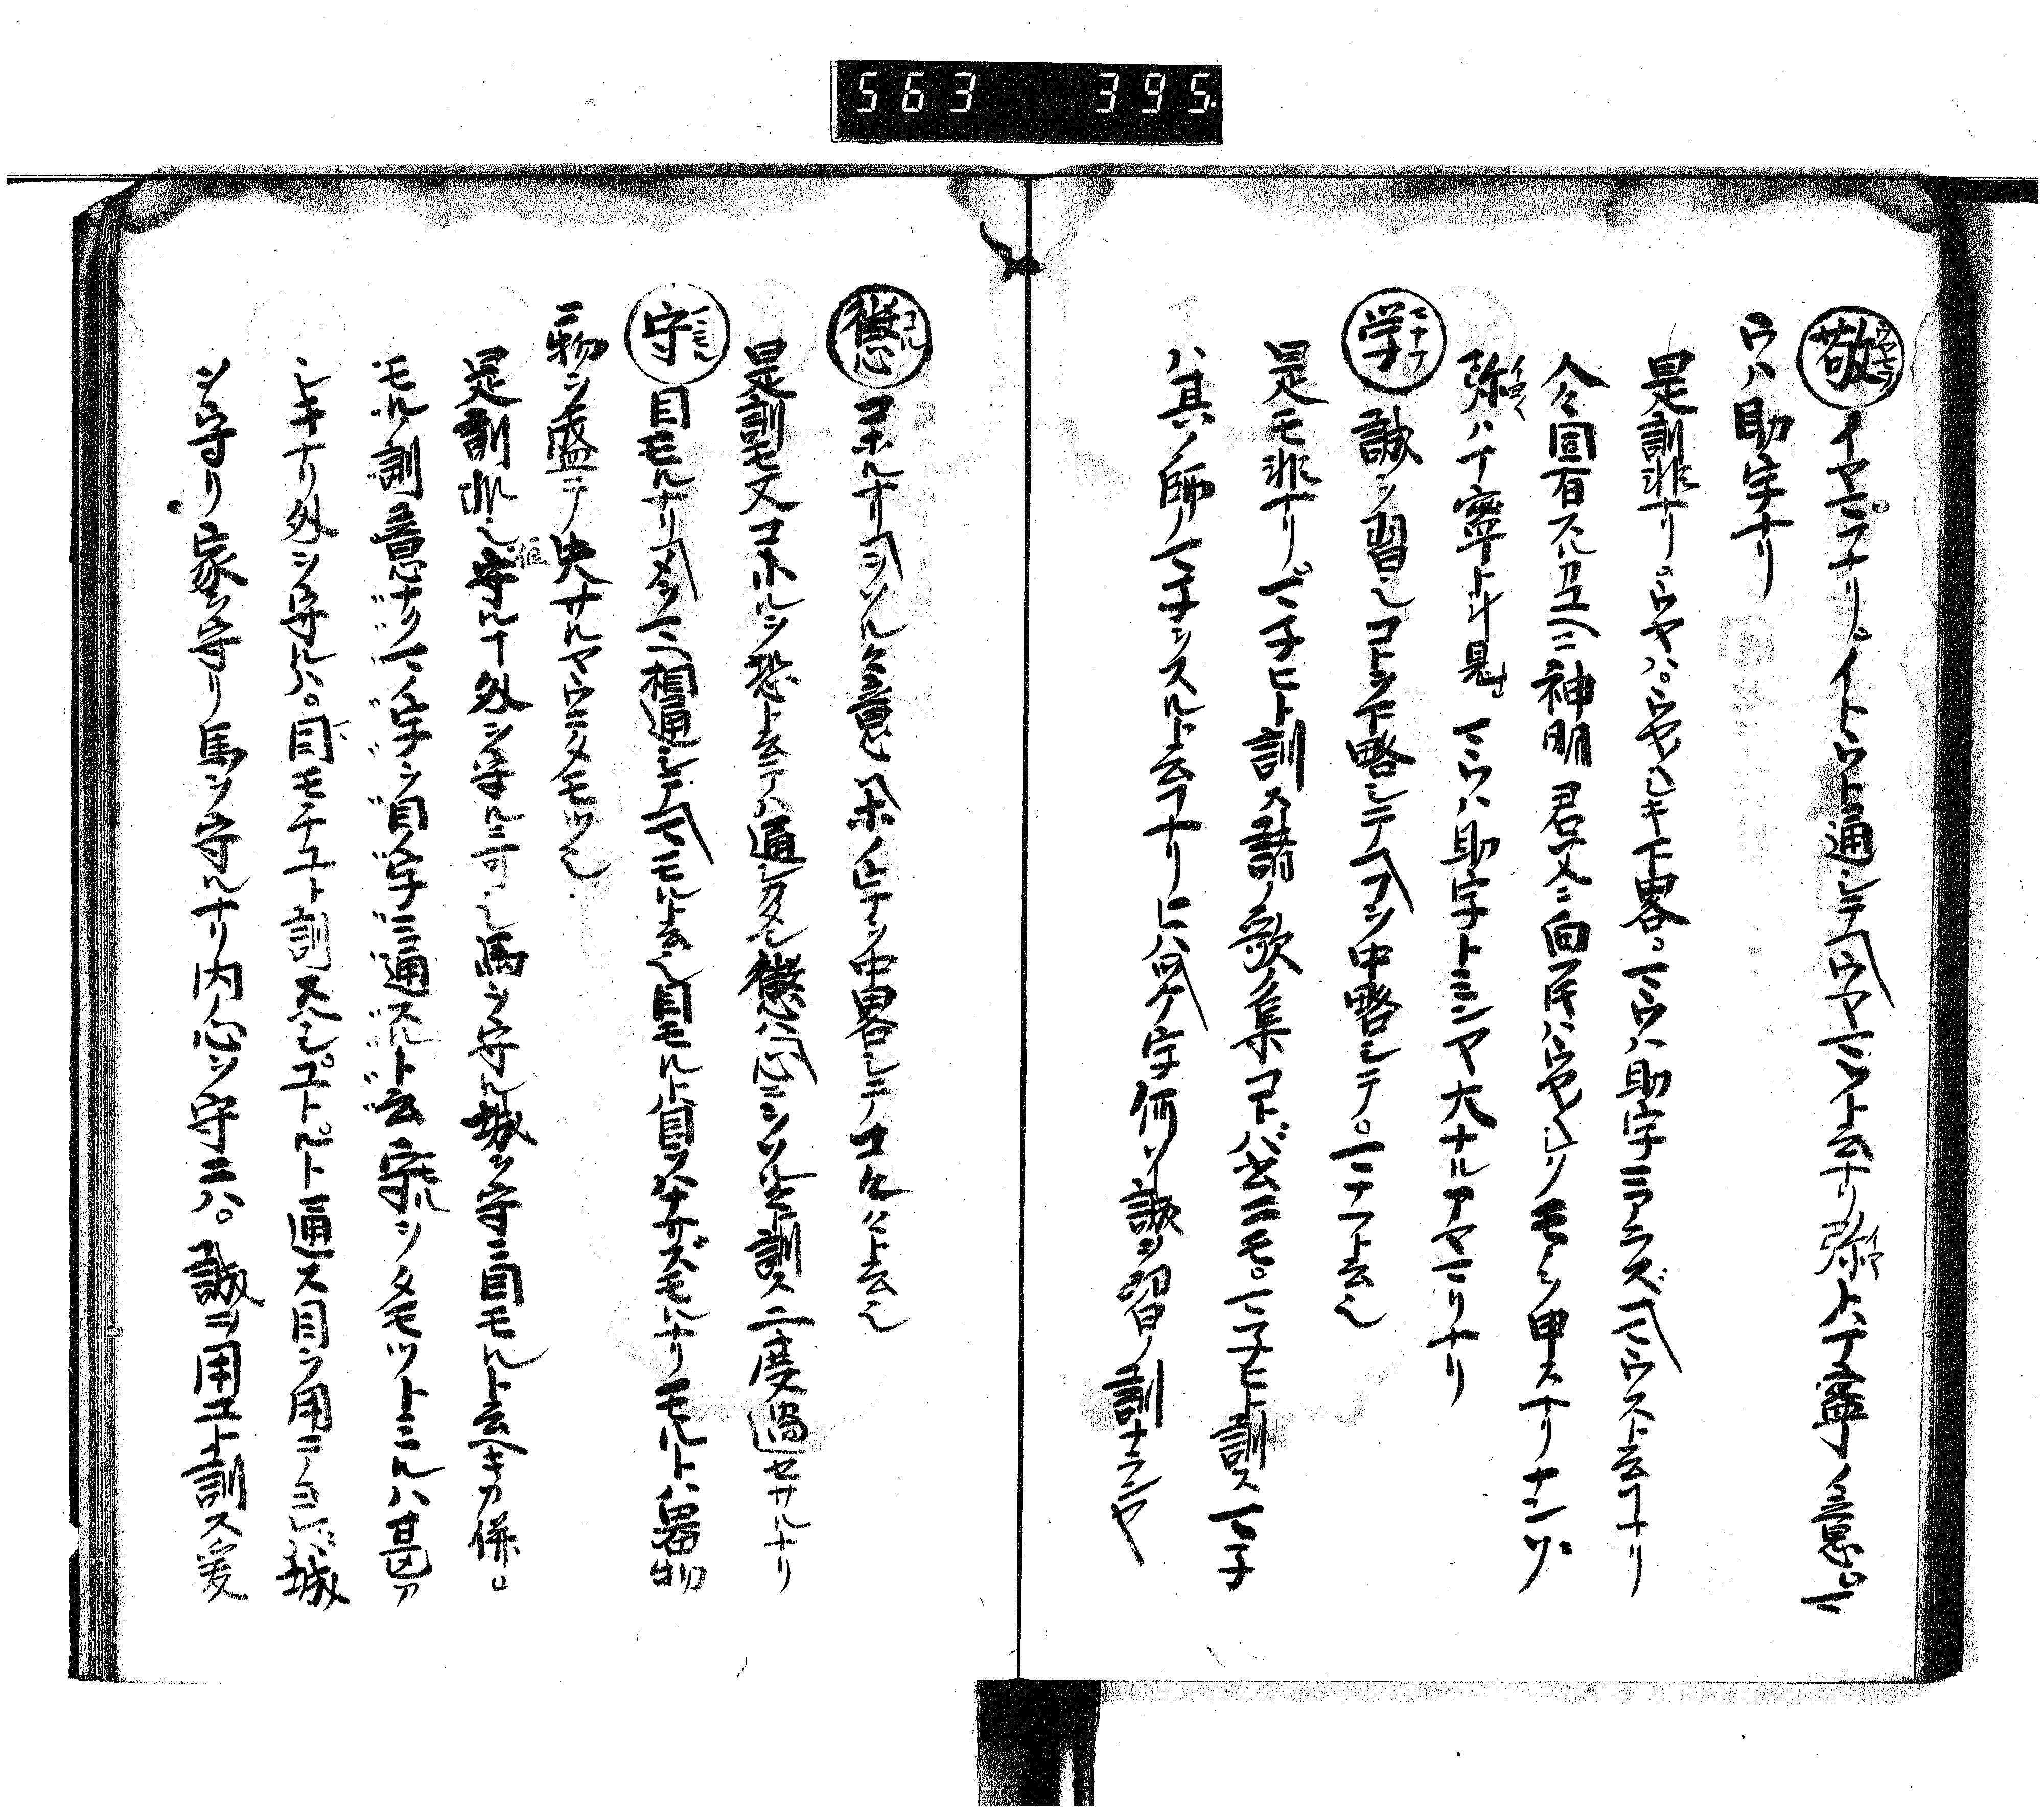 563 395.
敬 ウヤマフ イヤマフナリ。イトウト通シテウヤマフト云ナリ弥イヤトハ丁寧ノ意也マ
ウハ助字ナリ
是訓非ナリ。ウヤハ。ウヤ〱シキ下畧。マウハ助字ニアラズマウスト云フナリ
神明君父ニ向民ハウヤ〱シクモノヲ申スナリナンソ
弥ハ丁寧ト斗見 マウハ助字トミシヤ大ナルアヤマリナリ
学 マナフ 誠ヲ習シコトヲ下略シテフヲ中略シテ。マナフト云也
是モ非ナリ。マナヒト訓ス諸ノ歌ノ集コトバ書ニモ。マナヒト訓スマナ
ハ其ノ師ノマネヲスルト云フナリヒハツケ字何ソ誠ヲ習ノ訓ナランヤ
懲 コル コホルナリヲソルヽ意
是訓モ又コホルヲ恐ト云テハ通シカタシ懲ハ心ニヲソルヽト訓ス二度過セサルナリ
守 マモル 目モルナリメトマハ相通シテマモルト云也目モルト目ヲハナサズモルナリモルトハ器物
ニ物ヲ盛テ失サルヤウニタモツ也
是訓非也守ルコト外ヲ守ル三可也馬ヲ守ル城ヲ守ニ目モルト云ヘキカ併。
モルノ訓意ナリマノ字ヲ目ノ字ニ通スルト云守モルヲタモツトミルハ甚ア
シキナリ外ヲ守ルハ。目モチユト訓スヘシユトルト通ス目ヲ用ニノヨシバ城
ヲ守リ家ヲ守リ馬ヲ守ルナリ内ノ心ヲ守ニハ。誠ヲ用ユト訓ス爰